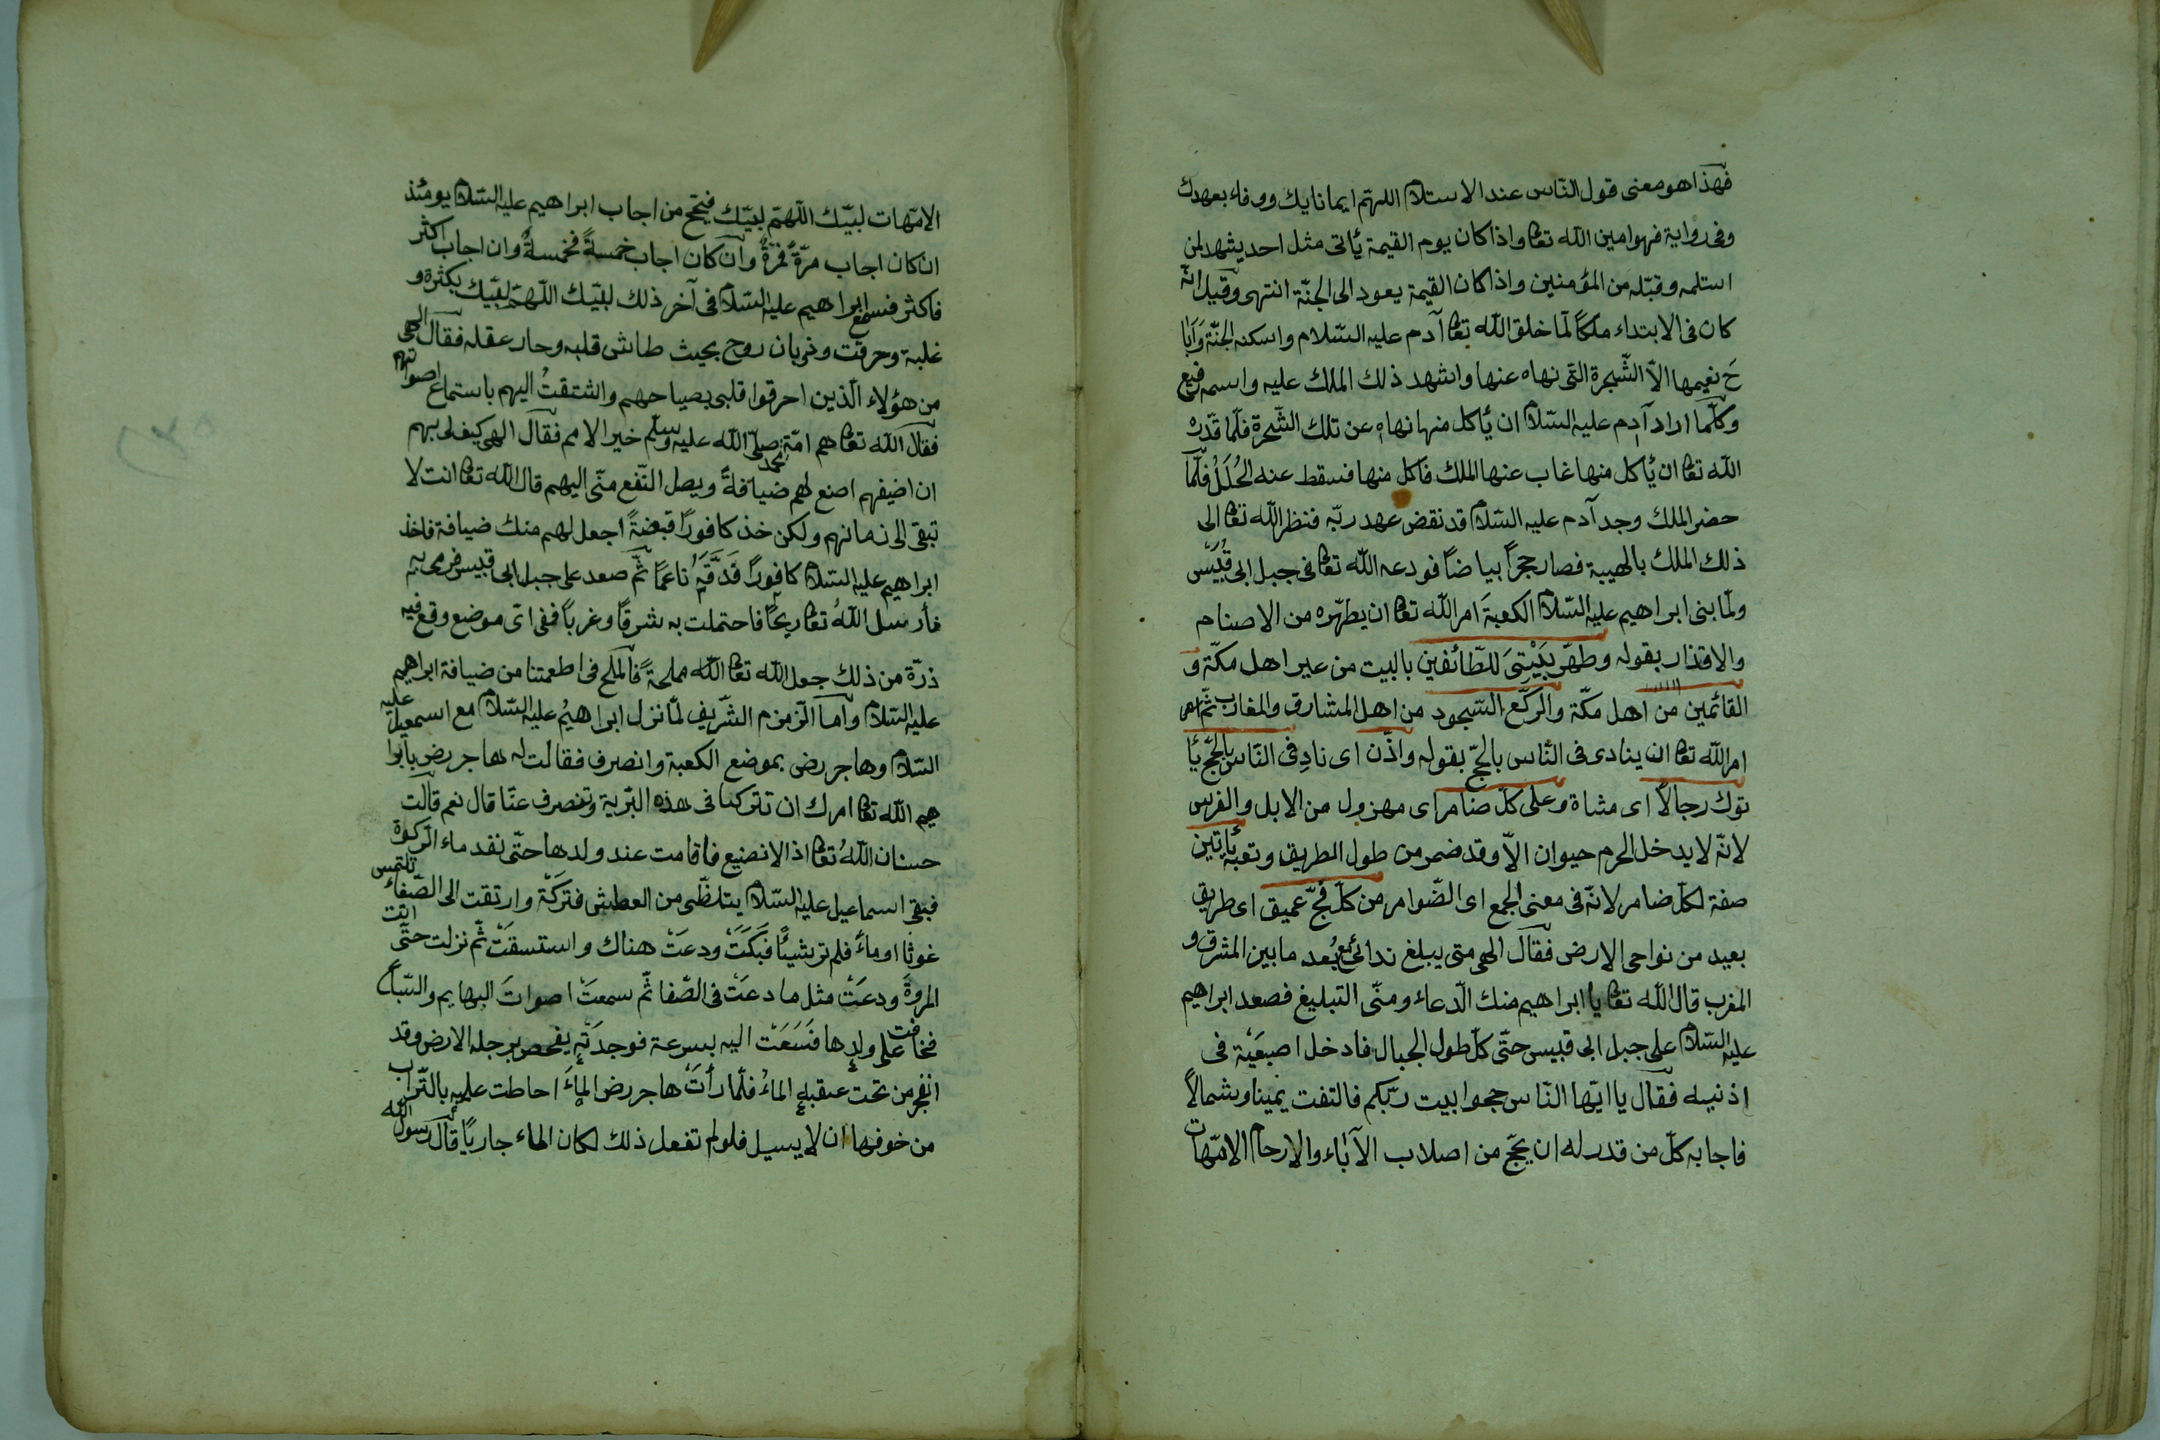 فهذا هو معنى قول الناس عند الاستلام اللهم ايمانا بك ووفاء بعهدك
وفى رواية فهوامين الله تعا واذا كان يوم القيمة يأتى مثل احد يشهد لمن
استلمه وقبّله من المؤمنين واذا كان القيمة يعود الى الجنّة انتهى وقيل انّه
كان فى الابتداء ملكاً لمّا خلق الله تعا آدم عليه السّلام واسكنه الجنّة وَاَبَا
حَ نعيمها الاّ الشّجرة التى نهاه عنها واشهد ذلك الملك عليه واسمه رفيع
وكلّما اراد آدم عليه السّلام ان يأكل منها نهاه عن تلك الشّجرة فلمّا قدّره
الله تعا ان يأكل منها غاب عنها الملك فاكل منها فسقط عنه الحُلَلُ فلمّا
حضر الملك وجد آدم عليه السّلام قد نقض عهد ربّه فنظر الله تعا الى
ذلك الملك بالهيبة فصار حجراً بياضاً فودعه الله تعا فى جبل ابى قُبَيْس
ولمّا بنى ابراهيم عليه السّلام الكعبةَ امر الله تعا ان يطهّره من الاصنام
والاقذار بقوله وطهّر بَيْتِىَ للطّائفين بالبيت من غير اهل مكّة و
القائمين من اهل مكّة والركّع السّجود من اهل المشارق والمغارب ثمّ
امر الله تعا ان ينادى فى النّاس بالحجّ بقوله واذّن اى نادِ فى النّاس بالحجّ يأ
توك رجالاً اى مشاة وعلى كلّ ضامر اى مهزول من الابل والفرس
لانّه لا يدخل الحرم حيوان الاّ وقد ضمر من طول الطريق وتعبه يأتين
صفة لكلّ ضامر لانّه فى معنى الجمع اى الضّوامر من كلّ فجّ عميق اى طريق
بعيد من نواحى الارض فقال الهى متى يبلغ ندائى مع بُعد ما بين المشرق و
المغرب قال الله تعا يا ابراهيم منك الدّعاء ومنّى التبليغ فصعد ابراهيم
عليه السّلام على جبل ابى قبيس حتّى كلّ طول الجبال فادخل اصبعَيْه فى
اذنيه فقال يا ايّها النّاس حجوا بيت ربّكم فالتفت يمينا وشمالاً
فاجابه كلّ من قدر له ان يحجّ من اصلاب الآباء والارحام الامّهات
الامّهات لبّيك اللّهمّ لبّيك فيحج من اجاب ابراهيم عليه السّلام يومئذ
ان كان اجاب مرّةً فمرّةٌ وان كان اجاب خمسةً فخمسةٌ وان اجاب اكثر
فاكثر فسمع ابراهيم عليه السّلام فى آخر ذلك لبّيك اللّهمّ لبّيك بكثرة و
غلبة وحرقت وذوبان روح بحيث طاش قلبه وحار عقله فقال الهى
من هؤلاء الّذين احرقوا قلبى بصياحهم واشتقتُ اليهم باستماع اصواتهم
فقال الله تعا هم امّة محمد صلّى الله عليه وسلّم خير الامم فقال الهى كيف لى بهم
ان اضيفهم اصنع لهم ضيافةً ويصل النّفع منّى اليهم قال الله تعا انت لا
تبقى الى زمانهم ولكن خذ كافوراً قبضةً اجعل لهم منك ضيافة فاخذ
ابراهيم عليه السّلام كافوراً فَدَقَّهُ ناعماً ثمّ صعد على جبل ابى قبيس فرمى به
فأرسل اللهُ تعا ريحاً فاحتملت به شرقاً وغرباً ففى اى موضع وقع فيه
ذرّة من ذلك جعل الله تعا الله مملحةً فالملح فى اطعمتنا من ضيافة ابراهيم
عليه السّلام واما الزمزم الشّريف لمّا نزل ابراهيمُ عليه السّلام مع اسمعيل عليه
السّلام وهاجر رض بموضع الكعبة وانصرف فقالت له هاجر رض يا ابرا
هيم الله تعا امرك ان تتركنا فى هذه البرّية وتنصرف عنّا قال نعم قالت
حسنا ان اللهُ تعا اذا لا نضيع فاقامت عند ولدها حتّى نفد ماء الرّكوة
فبقى اسماعيل عليه السّلام يتلظّى من العطش فتركَتْه وارتقت الى الصّفاء تلتمس
غوثا او ماءً فلم تر شيئاً فَبَكَتْ ودعتْ هناك واستسقتْ ثمّ نزلت حتّى اتت
المروةَ ودعَتْ مثل ما دعتْ فى الصّفا ثمّ سمعتْ اصواتَ البهايم والسّباع
فخافت على ولدها فَسَعَتْ اليه بسرعة فوجدَتْه يفحص برجله الارض وقد
انفجر من تحت عقبه الماءُ فلمّا رأتْ هاجر رض الماءَ احاطت عليه بالتّراب
من خوفها ان لا يسيل فلو لم تفعل ذلك لكان الماء جارياً قال رسول الله